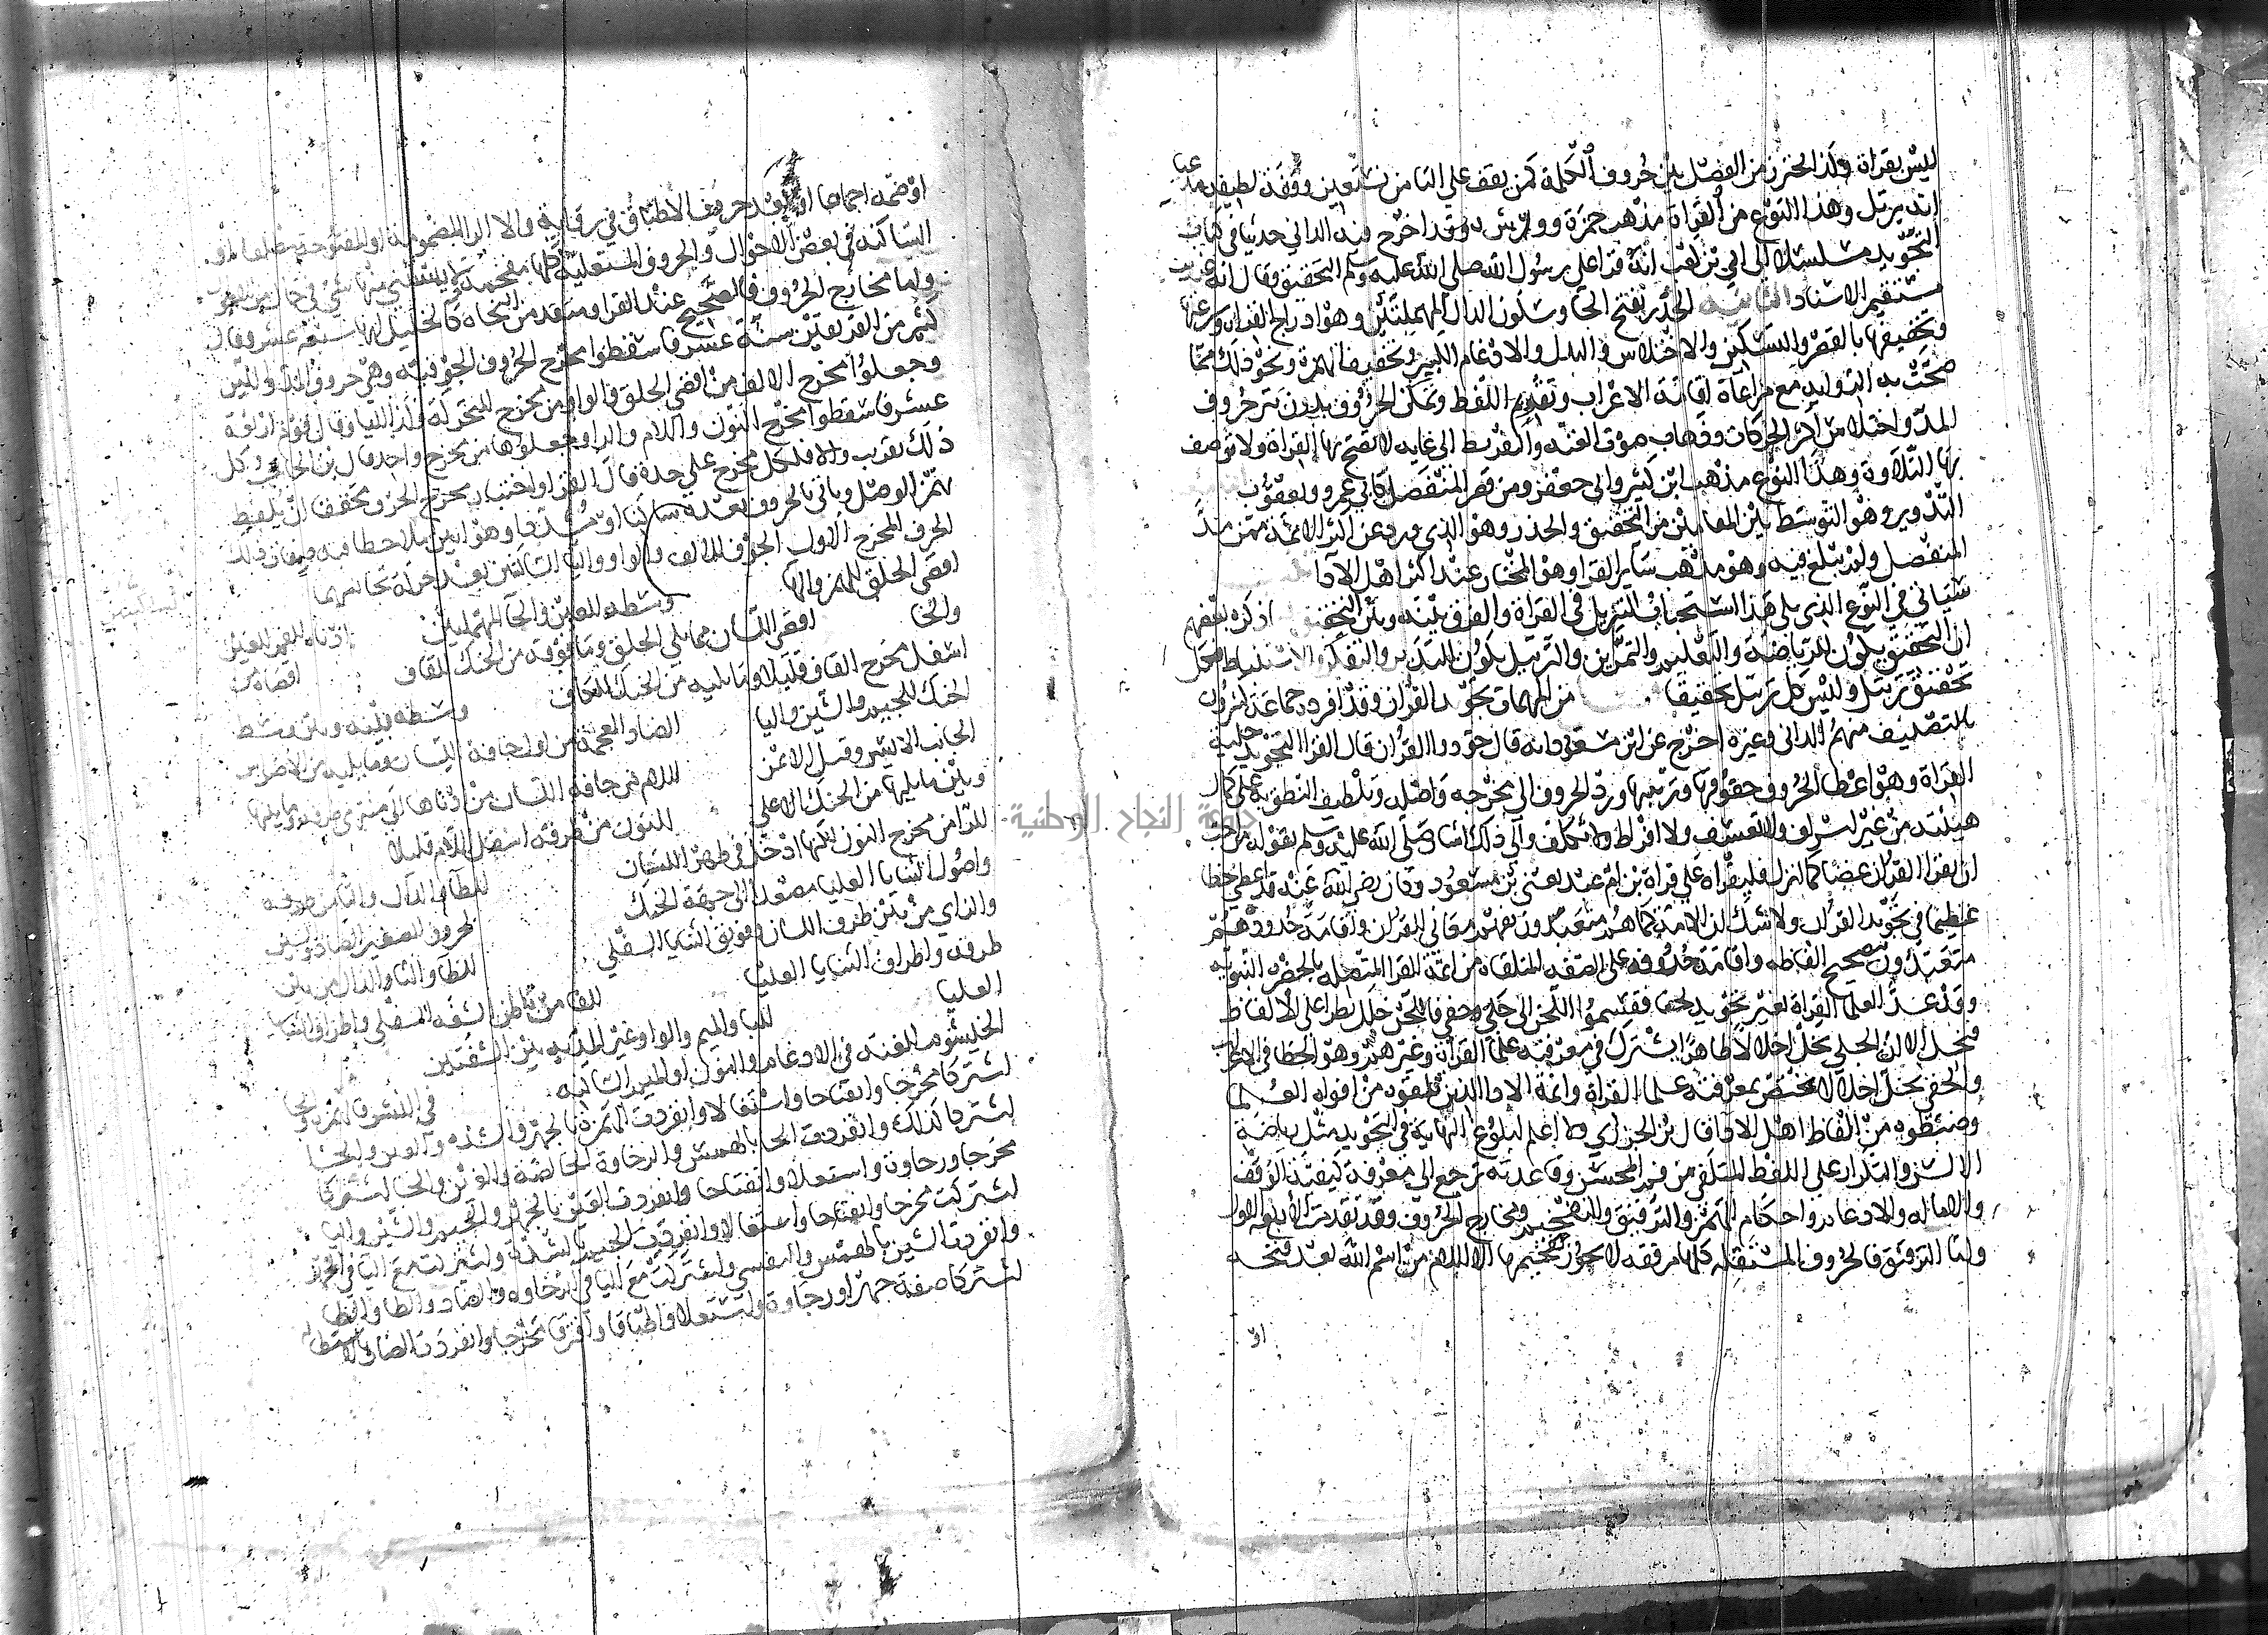 ليس بقراة ولذا يحترز من الفصل بين حروف الكلمة كمن يقف علي التا من نستعين وقفة لطيفة مدعيا
انه يرتل وهذا النوع من القراة مذهب حمزة وورش وقد اخرج فيه الداني حديثا في كتاب
التجويد مسلسلا الي ابي بن كعب انه قرا علي رسول الله صلي الله عليه وسلم التحقيق وقال انه غريب
مستقيم الاسناد الثانية الحدر بفتح الحا وسكون الدال المهملتين وهو ادراج القراة وسرعتها
وتخفيفها بالقصر والتسكين والاختلاس والبدل والادغام الكبير وتخفيف الهمزة ونحو ذلك مما
صحت به الرواية مع مراعاة اقامة الاعراب وتقويم اللفظ وتمكن الحروف بدون بتر حروف
المد واختلاس اكثر الحركات وذهاب صوت الغنه والتفريط الي غايه لا تصح بها القراة ولا توصف
بها التلاوة وهذا النوع مذهب ابن كثير وابي جعفر ومن قصر المنفصل كابي عمرو ويعقوب
التدوير وهو التوسط بين المقامين من التحقيق والحدر وهو الذي ورد عن اكثر الائمة ممن مد
المنفصل ولم يبلغ فيه وهو مذهب ساير القرا وهو المختار عند اكثر اهل الادا
سياتي في النوع الذي يلي هذا استحباب الترتيل في القراة والفرق بينه وبين التحقيق اذ كره بعضهم
ان التحقيق يكون للرياضة والتعليم والتمرين والترتيل يكون للتدبر والتفكر والاستنباط فكل
تحقيق ترتيل وليس كل ترتيل تحقيقا من المهمات تجويد القران وقد افرده جماعة كثيرون
بالتصنيف منهم الداني وغيره اخرج عن ابن مسعود انه قال جودوا القران قال القرا التجويد حلية
القراة وهو اعطا الحروف حقوقها وترتيبها ورد الحروف الي مخرجه واصله وتلطيف النطق به علي كمال
هيئته من غير اسراف ولا تعسف ولا افراط ولا تكلف والي ذلك اشار صلي الله عليه وسلم بقوله من احب
ان يقرا القران غضا كما انزل فليقراه علي قراة بن ام عبد يعني بن مسعود وكان رضي الله عنه قد اعطي حظا
عظيما في تجويد القران ولا شك ان الامة كما هم متعبدون بفهم معاني القران واقامة حدوده هم
متعبدون بتصحيح الفاظه واقامة حروفه علي الصفة المتلقاه من ائمة القرا المتصلة بالحضرة النبوية
وقد عد العلما القراة بغير تجويد لحنا فقسموا اللحن الي جلي وخفي فاللحن خلل يطرا علي الالفاظ
فيخل الا ان الجلي يخل اخلالا ظاهرا يشترك في معرفته علما القراة وغيرهم وهو الخطا في الاعراب
والخفي يخل اخلالا يختص بمعرفته علما القراة وائمة الادا الذين تلقوه من افواه العلما
وضبطوه من الفاظ اهل الادا قال بن الجزري ولا اعلم لبلوغ النهاية في التجويد مثل رياضة
الالسن والتكرار علي اللفظ المتلقي من فم المحسن وقاعدته ترجع الي معرفة كيفية الوقف
والاماله والادغام واحكام الهمز والترقيق والتفخيم ومخارج الحروف وقد تقدمت الاربعة الاول
واما الترقيق فالحروف المستفله كلها مرققه لا يجوز تفخيمها الا اللام من اسم الله بعد فتحه
او
او ضمه اجماعا او بعد حروف الاطباق في رواية والا الرا المضمومة او المفتوحة مطلقا او
الساكنه في بعض الاحوال والحروف المستعلية كلها مفخمة لا يستثني منها شي في حال من الاحوال
واما مخارج الحروف فالصحيح عند القرا ومتقدمي النحاه كالخليل انها سبعة عشر وقال
كثير من الفريقين ستة عشر فاسقطوا مخرج الحروف الجوفية وهي حروف المد واللين
وجعلوا مخرج الالف من اقصي الحلق والواو من مخرج المتحركة وكذا اليا وقال قوم اربعة
عشر فاسقطوا مخرج النون واللام والرا وجعلوها من مخرج واحد قال بن الحاجب وكل
ذلك تقريب والا فلكل مخرج علي حدة قال القرا واختبار مخرج الحرف محققا ان يلفظ
بهمزة الوصل وياتي بالحروف بعده ساكنا او مشددا وهو ابين ملاحظا فيه صفات ذلك
الحرف المخرج الاول الجوف للالف والواو واليا الساكنين بعد حركة تجانسهما
اقصي الحلق للهمز والها وسطه للعين والحا المهملتين ادناه للغين
والخا اقصي اللسان مما يلي الحلق وما فوقه من الحنك للقاف اقصاه من
اسفل مخرج القاف قليلا وما يليه من الحنك للكاف وسطه بينه وبين وسط
الحنك للجيم والشين واليا الضاد المعجمة من اول حافة اللسان وما يليه من الاضراس
الجانب الايسر وقيل الايمن اللام من حافة اللسان من ادناها الي منتهي طرفه وما بينها
وبين ما يليها من الحنك الاعلي للنون من طرفه اسفل اللام قليلا
للرا من مخرج النون لكنها ادخل في ظهر اللسان للطا والدال والتا من طرفه
واصول الثنايا العليا مصعدا الي جهة الحنك لحروف الصفير الصاد والسين
والزاي من بين طرف اللسان وفويق الثنايا السفلي للظا والثا والذال من بين
طرفه واطراف الثنايا العليا للفا من باطن الشفه السفلي واطراف الثنايا
العليا للبا والميم والواو غير المدية بين الشفتين
الخيشوم للغنه في الادغام والنون او الميم الساكنه في النشر فالهمزة والها
اشتركا مخرجا وانفتاحا واستفالا وانفردت الهمزة بالجهر والشده والعين والحا
اشتركا كذلك وانفردت الحا بالهمس والرخاوة الخالصة والغين والخا اشتركا
مخرجا ورخاوة واستعلا وانفتاحا وانفردت الغين بالجهر والجيم والشين واليا
اشتركت مخرجا وانفتاحا واستفالا وانفردت الجيم بالشدة واشتركت مع اليا في الجهر
وانفردت الشين بالهمس والتفشي واشتركت مع اليا في الرخاوه والضاد والظا
اشتركا صفة جهرا ورخاوة واستعلا واطباقا وافترقا مخرجا وانفردت الضاد بالاستطاله
جامعة النجاح الوطنية